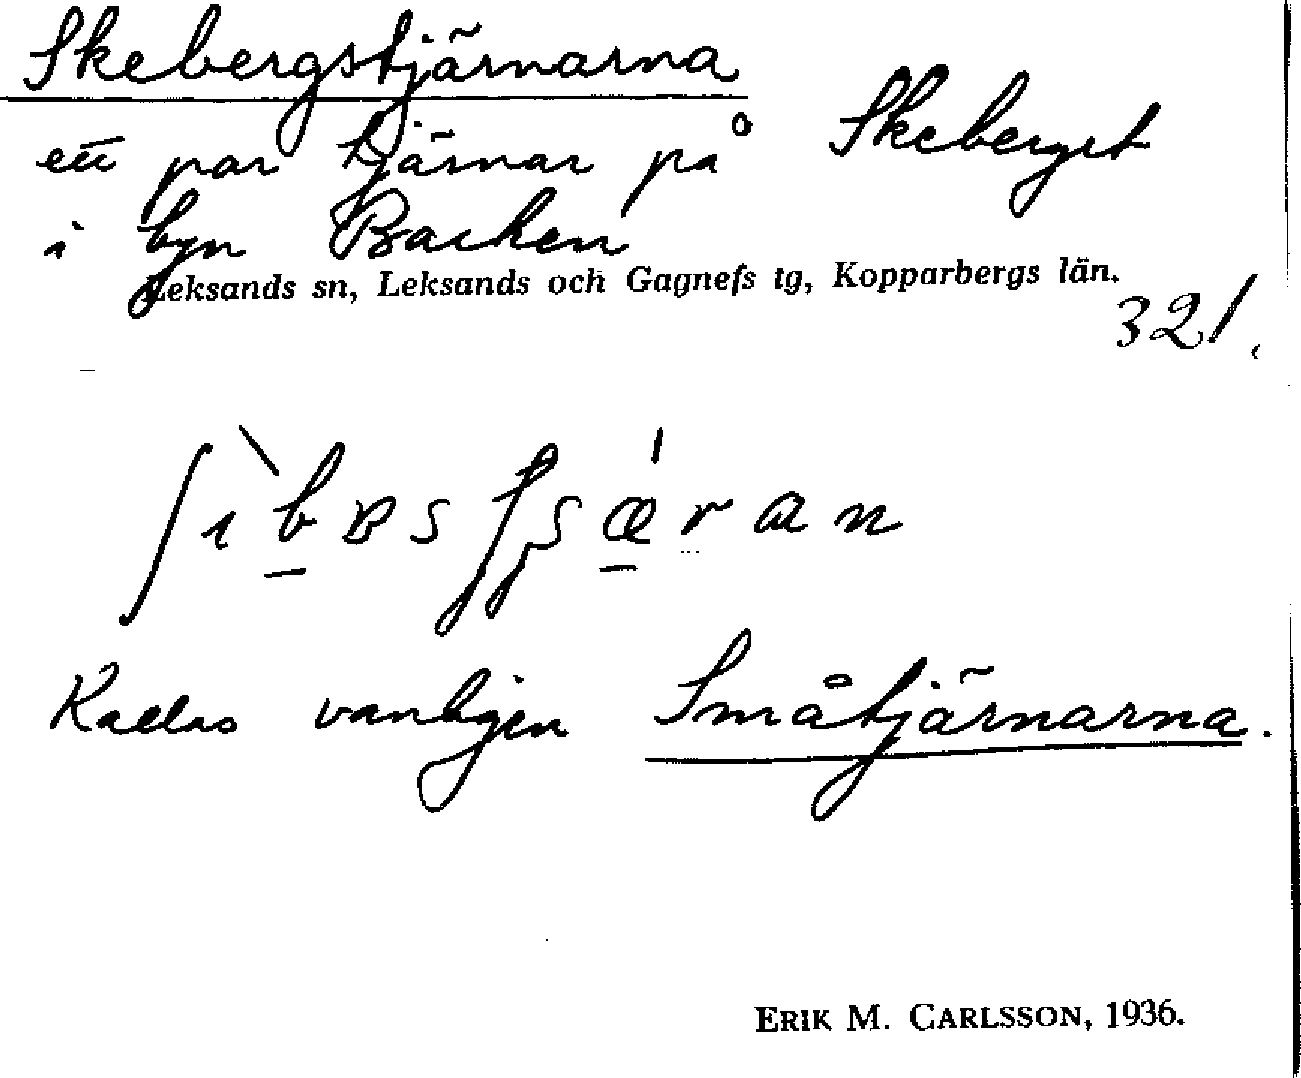 Skebergstjärnarna
ett par tjärnar på Skeberget
i byn Backen
Leksands sn, Leksands och Gagnefs tg, Kopparbergs län.
321.
Kallas vanligen Småtjärnarna.
ERIK M. CARLSSON, 1936.